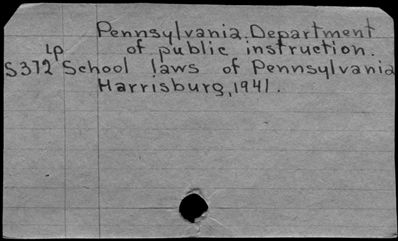 Pennsylvania. Department
lp of public instruction.
S372 School laws of Pennsylvania
Harrisburg, 1941.